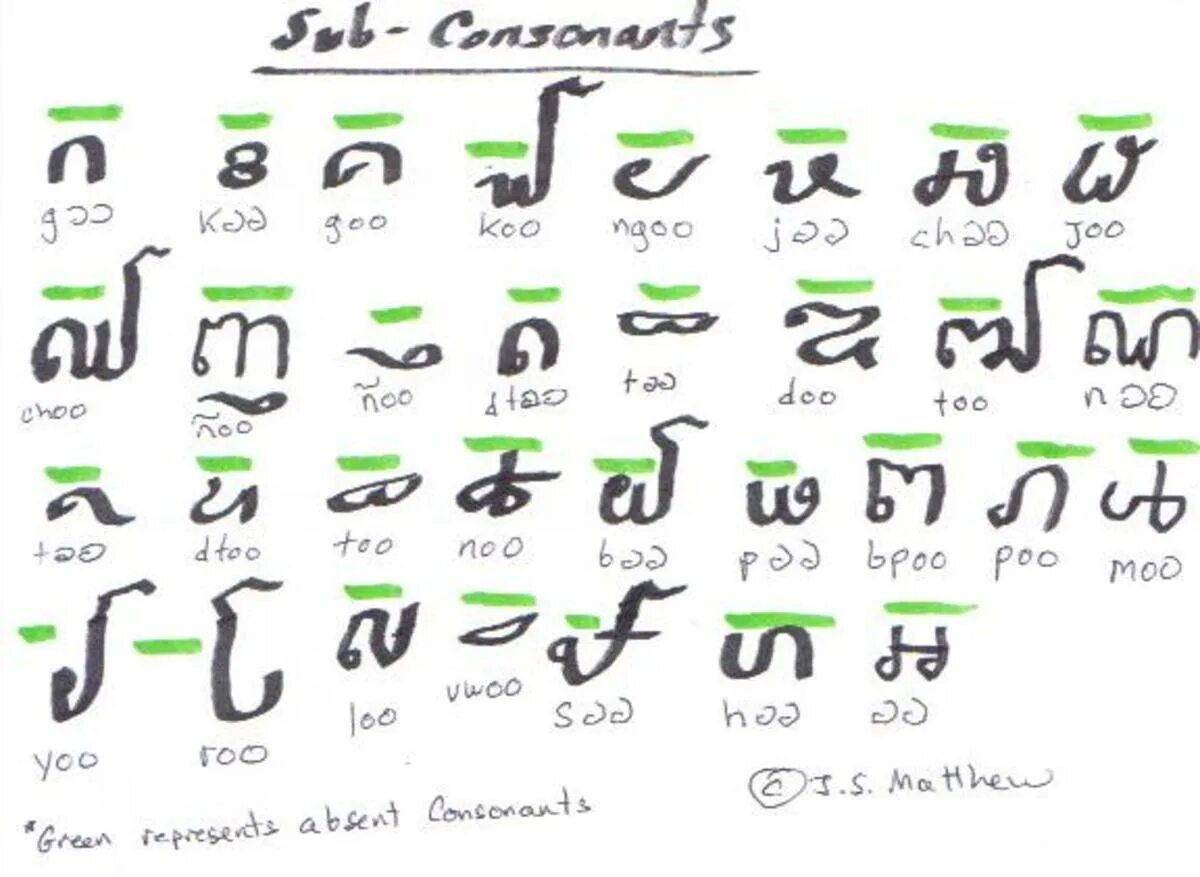 Sub-Consonants
្ក ្ខ ្គ ្ឃ ្ង ្ច ្ឆ ្ជ
gɔɔ kɔɔ goo koo ngoo jɔɔ chɔɔ joo
្ឈ ញ្ញ ្ញ ្ត ្ឋ ្ឌ ្ឍ ្ណ
choo ñoo ñoo dtɔɔ tɔɔ doo too nɔɔ
្ថ ្ទ ្ធ ្ន ្ប ្ផ ្ព ្ភ ្ម
tɔɔ dtoo too noo bɔɔ pɔɔ bpoo poo moo
្យ ្រ ្ល ្វ ្ស ្ហ ្អ
yoo roo loo vwoo sɔɔ hɔɔ ɔɔ
© J.S. Matthew
*Green represents absent Consonants